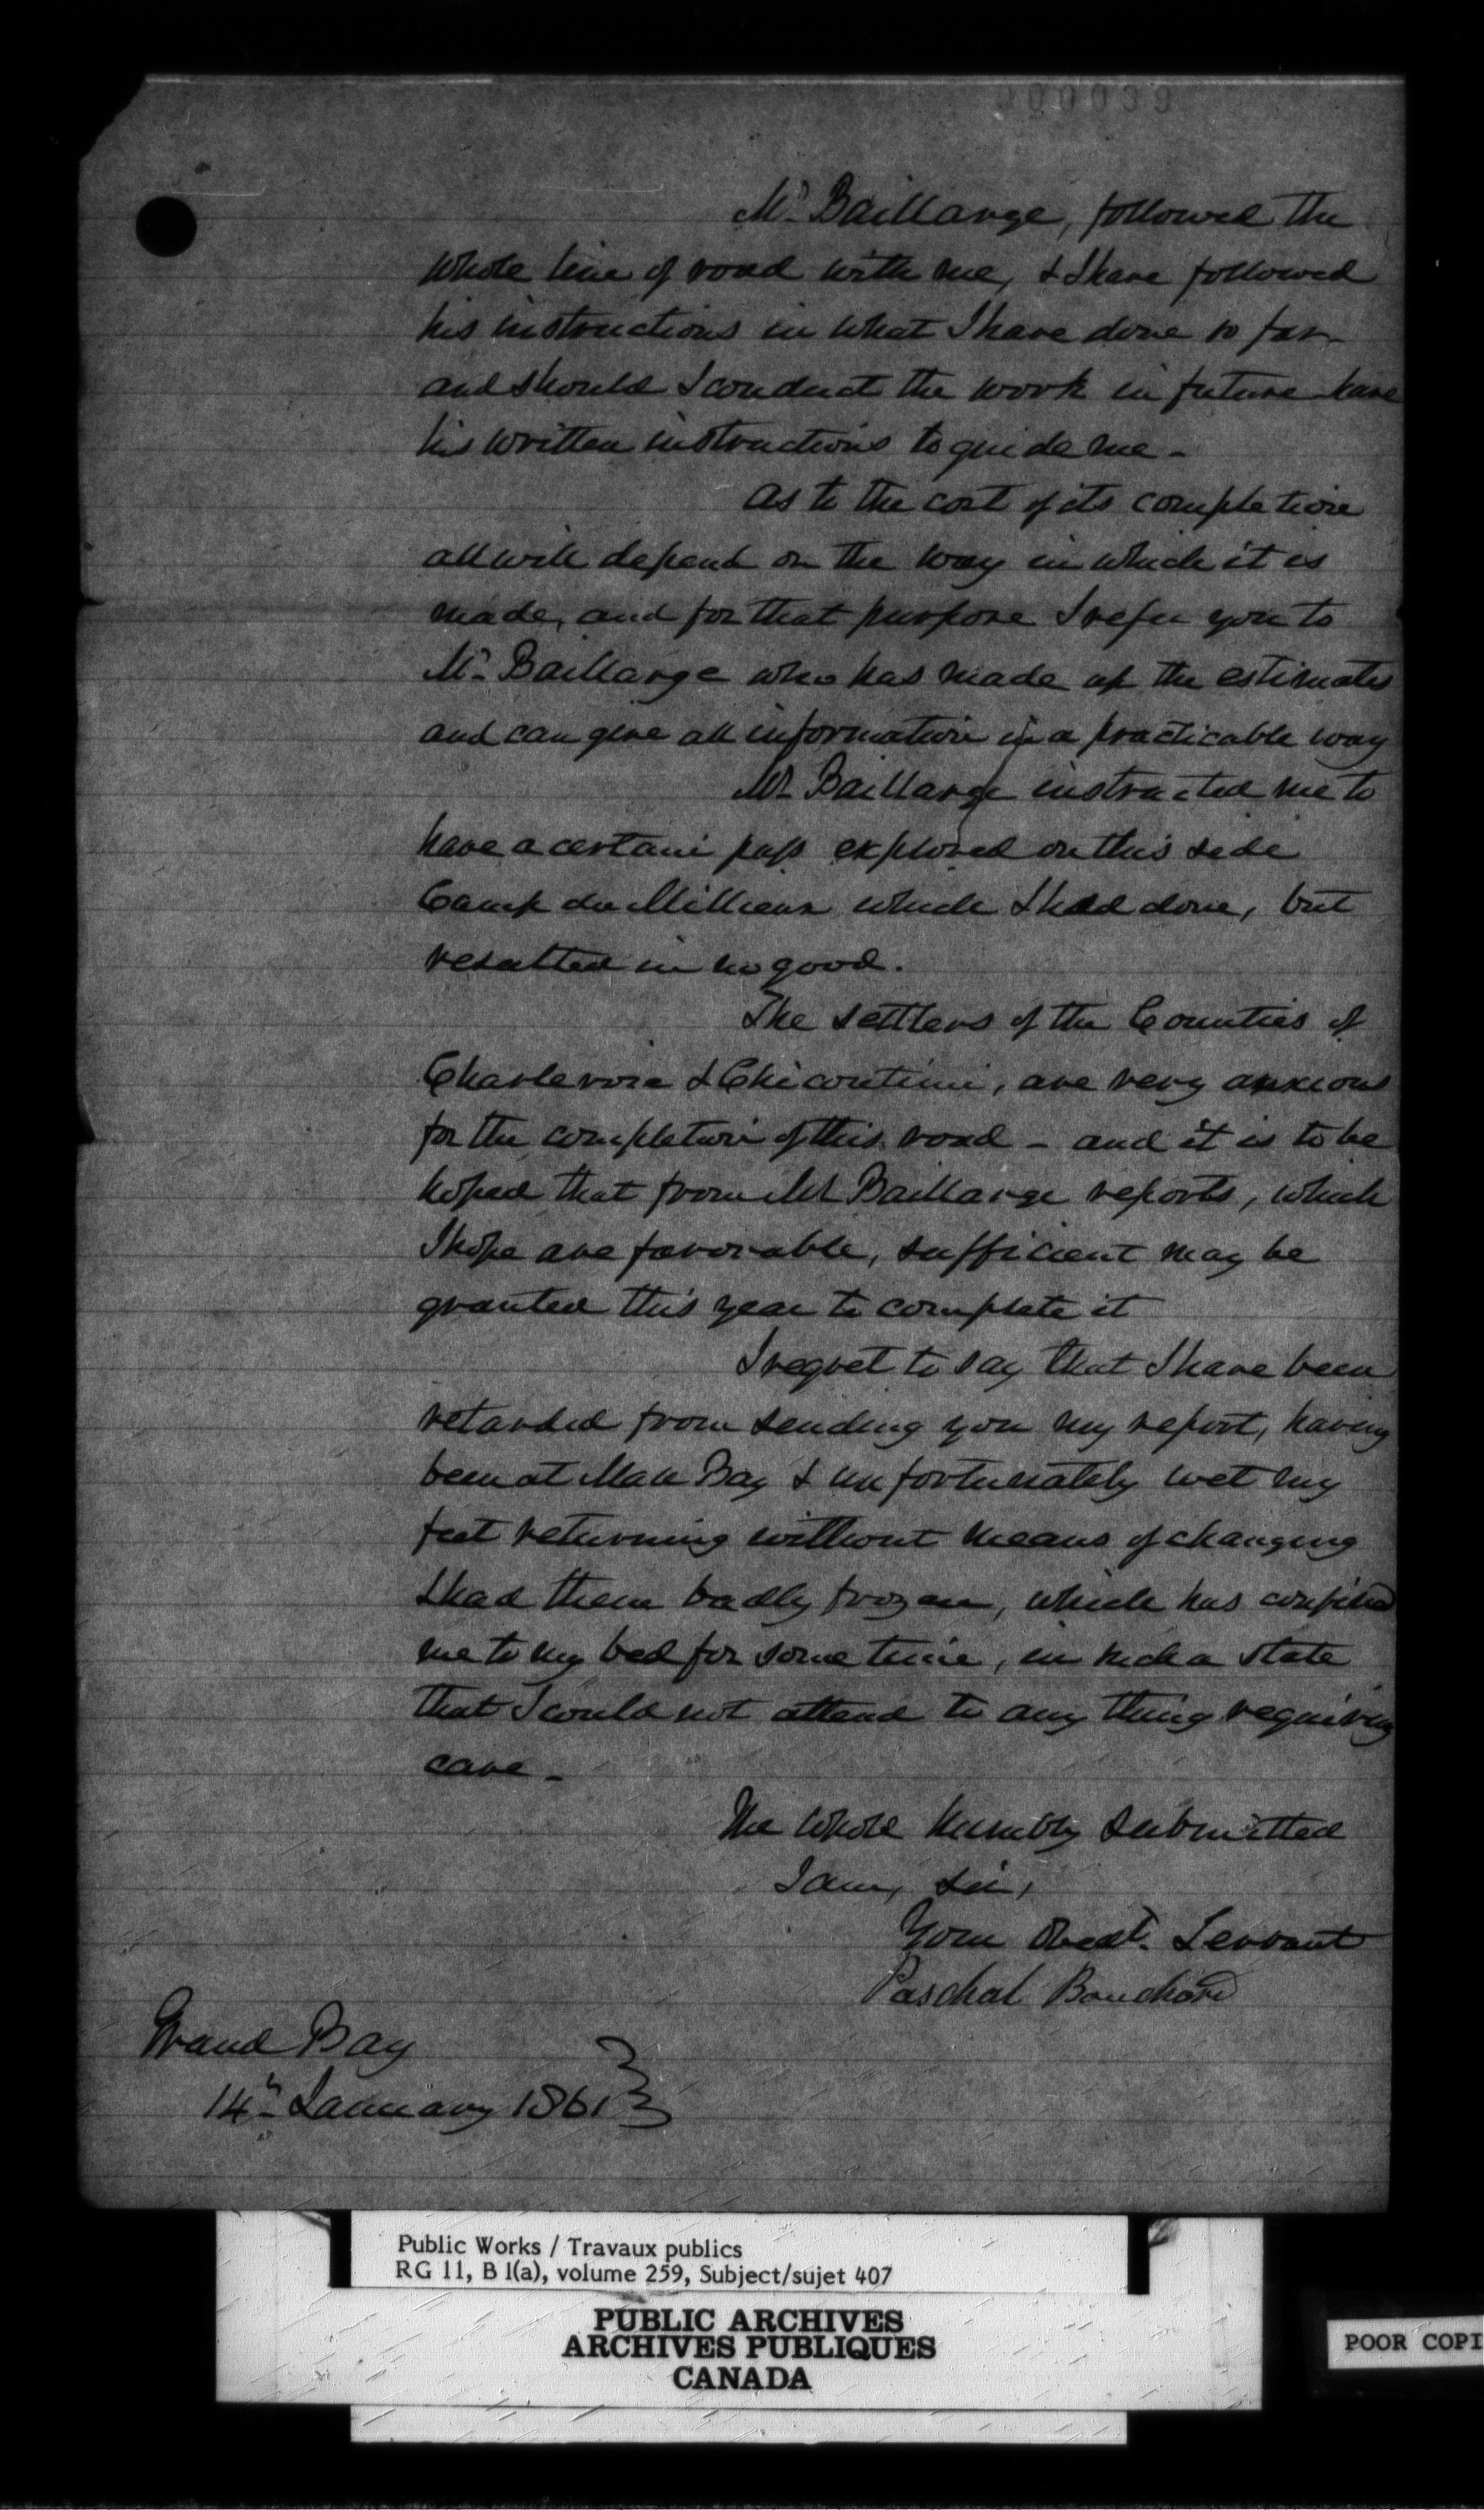 000039
Mr Baillarge, followed the
whole line of road with me, & I have followed
his instructions in what I have done so far
and should I conduct the work in future have
his written instructions to guide me -
As to the cost of its completion
all will depend on the way in which it is
made, and for that purpose I refer you to
Mr Baillarge who has made up the estimates
and can give all information in a practicable way
Mr Baillarge instructed me to
have a certain pass explored on this side
Camp du Millieux which I had done, but
resulted in no good.
The settlers of the Counties of
Charlevoix & Chicoutimi, are very anxious
for the completion of this road - and it is to be
hoped that from Mr Baillarge reports, which
I hope are favorable, sufficient may be
granted this year to complete it
I regret to say that I have been
retarded from sending you my report, having
been at Mall Bay & unfortunately wet my
feet returning without means of changing
I had them badly frozen, which has confined
me to my bed for some time, in such a state
that I could not attend to any thing requiring
care -
The whole humbly submitted
I am, Sir,
Your Obedt. Servant
Paschal Bouchard
Grand Bay
14th January 1861
Public Works / Travaux publics
RG 11, B 1(a), volume 259, Subject/sujet 407
PUBLIC ARCHIVES
ARCHIVES PUBLIQUES
CANADA
POOR COPI